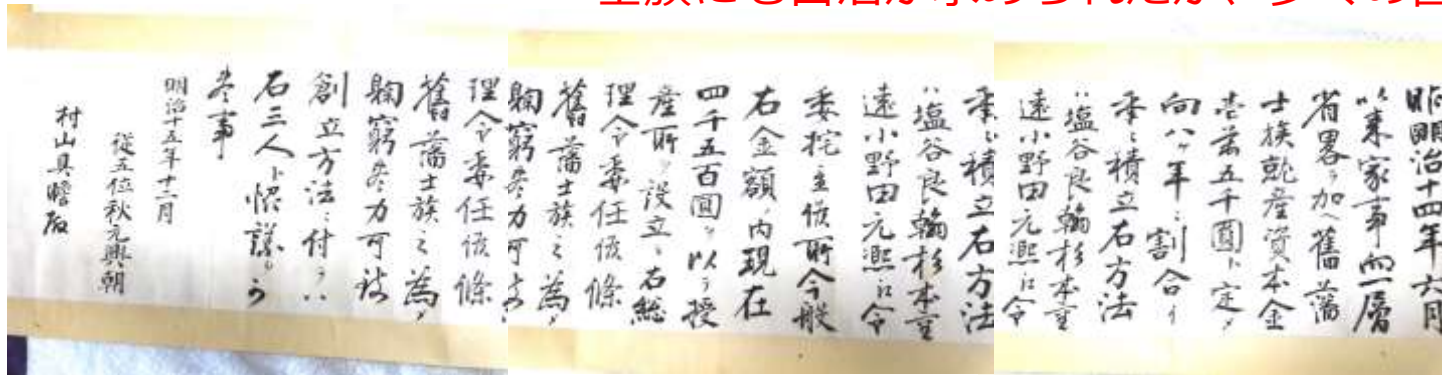 族にも が求められたが、多くの
昨明治十四年六月
以来家事向一層
省畧ヲ加ヘ舊藩
士族就産資本金
壱萬五千圓ト定メ
向八ヶ年ニ割合ヒ
年々積立右方法
ハ塩谷良翰杉本重
遠小野田元熙江令
年々積立右方法
ハ塩谷良翰杉本重
遠小野田元熙江令
委托置候所今般
右金額ノ内現在
四千五百圓ヲ以テ授
産所ヲ設立シ右総
理令委任候條
舊藩士族之為メ
鞠躬尽力可
理令委任候條
舊藩士族之為メ
鞠躬尽力可致
創立方法ニ付テハ
右三人ト協議
事
明治十五年十二月
従五位秋元興朝
村山具瞻殿